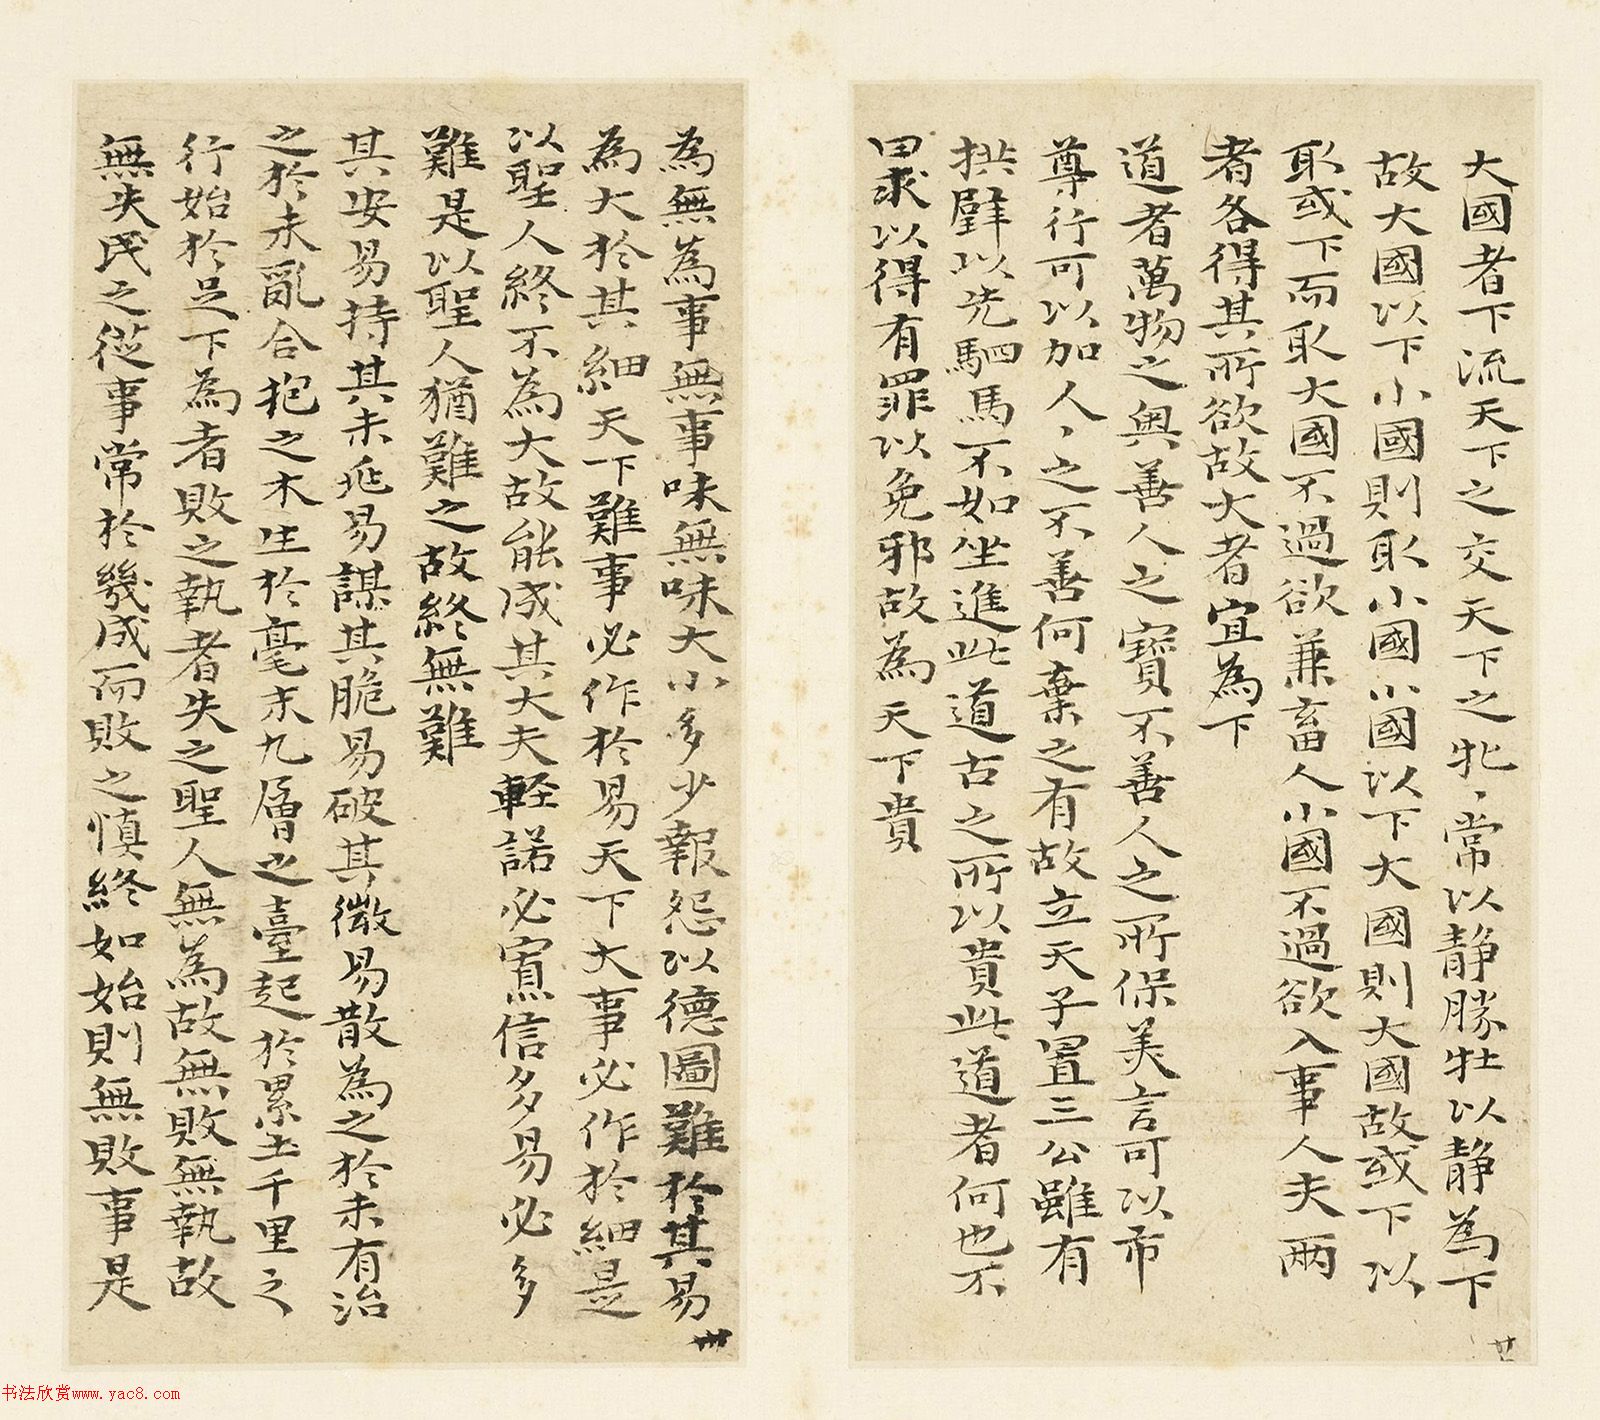 大國者下流天下之交天下之牝〻常以静勝牡以静為下
故大國以下小國則取小國小國以下大國則大國故或下以
取或下而取大國不過欲兼畜人小國不過欲入事人夫兩
者各得其所欲故大者宜為下
道者萬物之奥善人之寶不善人之所保美言可以市
尊行可以加人〻之不善何棄之有故立天子置三公雖有
拱璧以先駟馬不如坐進此道古之所以貴此道者何也不
曰求以得有罪以免邪故為天下貴
廿
為無為事無事味無味大小多少報怨以德圖難於其易
為大於其細天下難事必作於易天下大事必作於細是
以聖人終不為大故能成其大夫輕諾必寡信多易必多
難是以聖人猶難之故終無難
其安易持其未兆易謀其脆易破其微易散為之於未有治
之於未亂合抱之木生於毫末九層之臺起於累土千里之
行始於足下為者敗之執者失之聖人無為故無敗無執故
無失民之從事常於幾成而敗之慎終如始則無敗事是
书法欣赏www.yac8.com